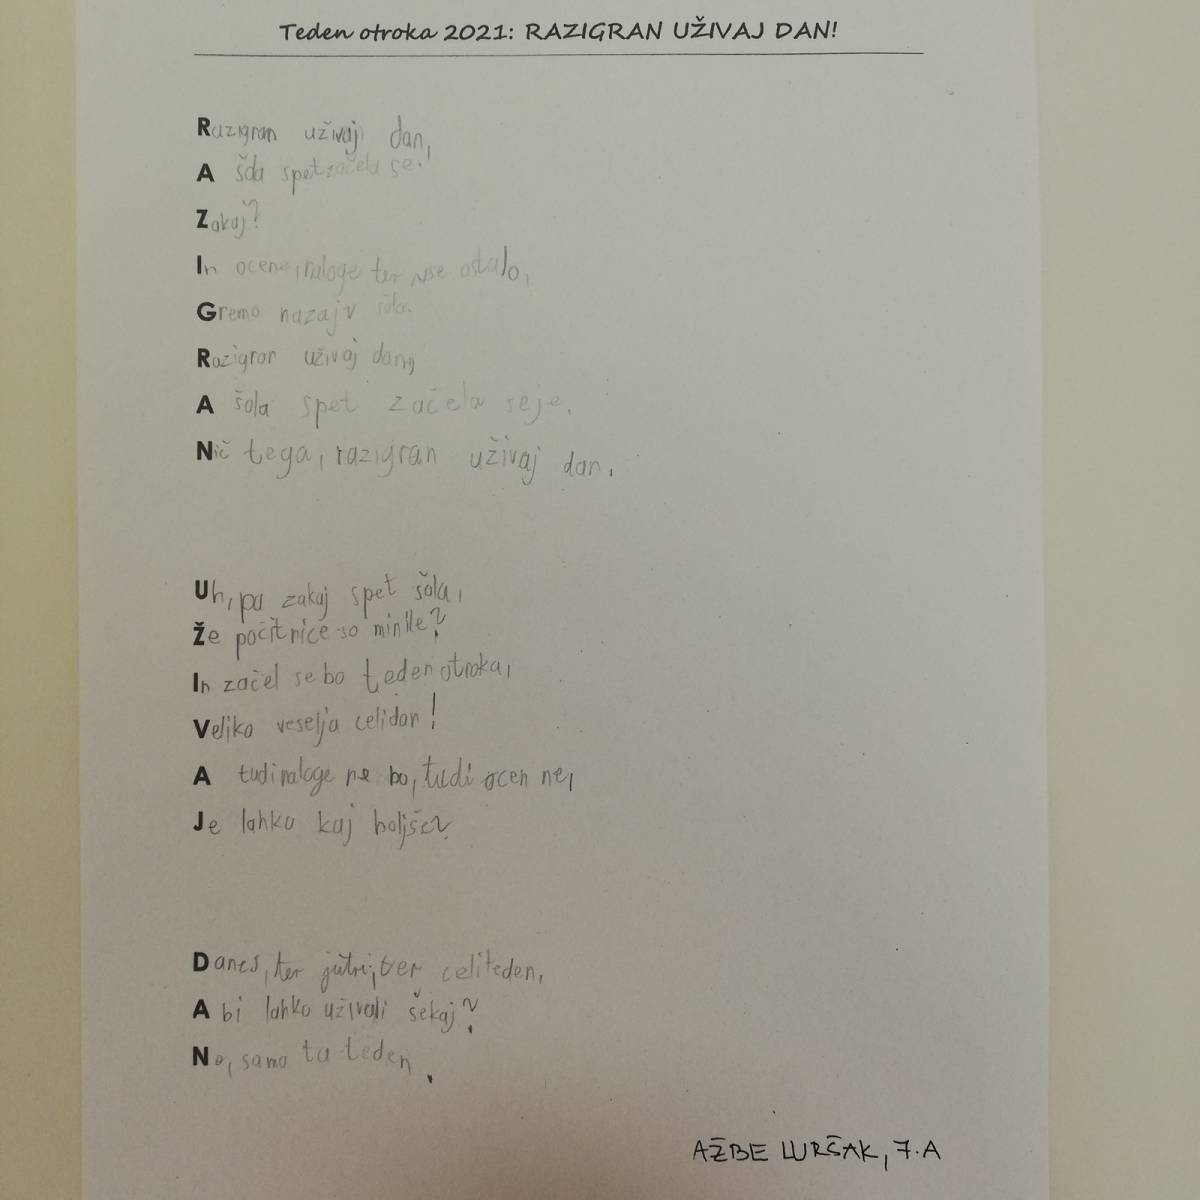 Teden otroka 2021: RAZIGRAN UŽIVAJ DAN!
Razigran uživaj dan,
A šola spet začela se.
Zakaj?
In ocene, naloge ter vse ostalo,
Gremo nazaj v šolo.
Razigran uživaj dan,
A šola spet začela se je.
Nič tega, razigran uživaj dan.
Uh, pa zakaj spet šola,
Že počitnice so minile?
In začel se bo teden otroka,
Veliko veselja celi dan!
A tudi naloge ne bo, tudi ocen ne,
Je lahko kaj boljše?
Danes, ter jutri, ter celi teden,
A bi lahko uživali še kaj?
Ne, samo ta teden.
AŽBE LURŠAK, 7.A